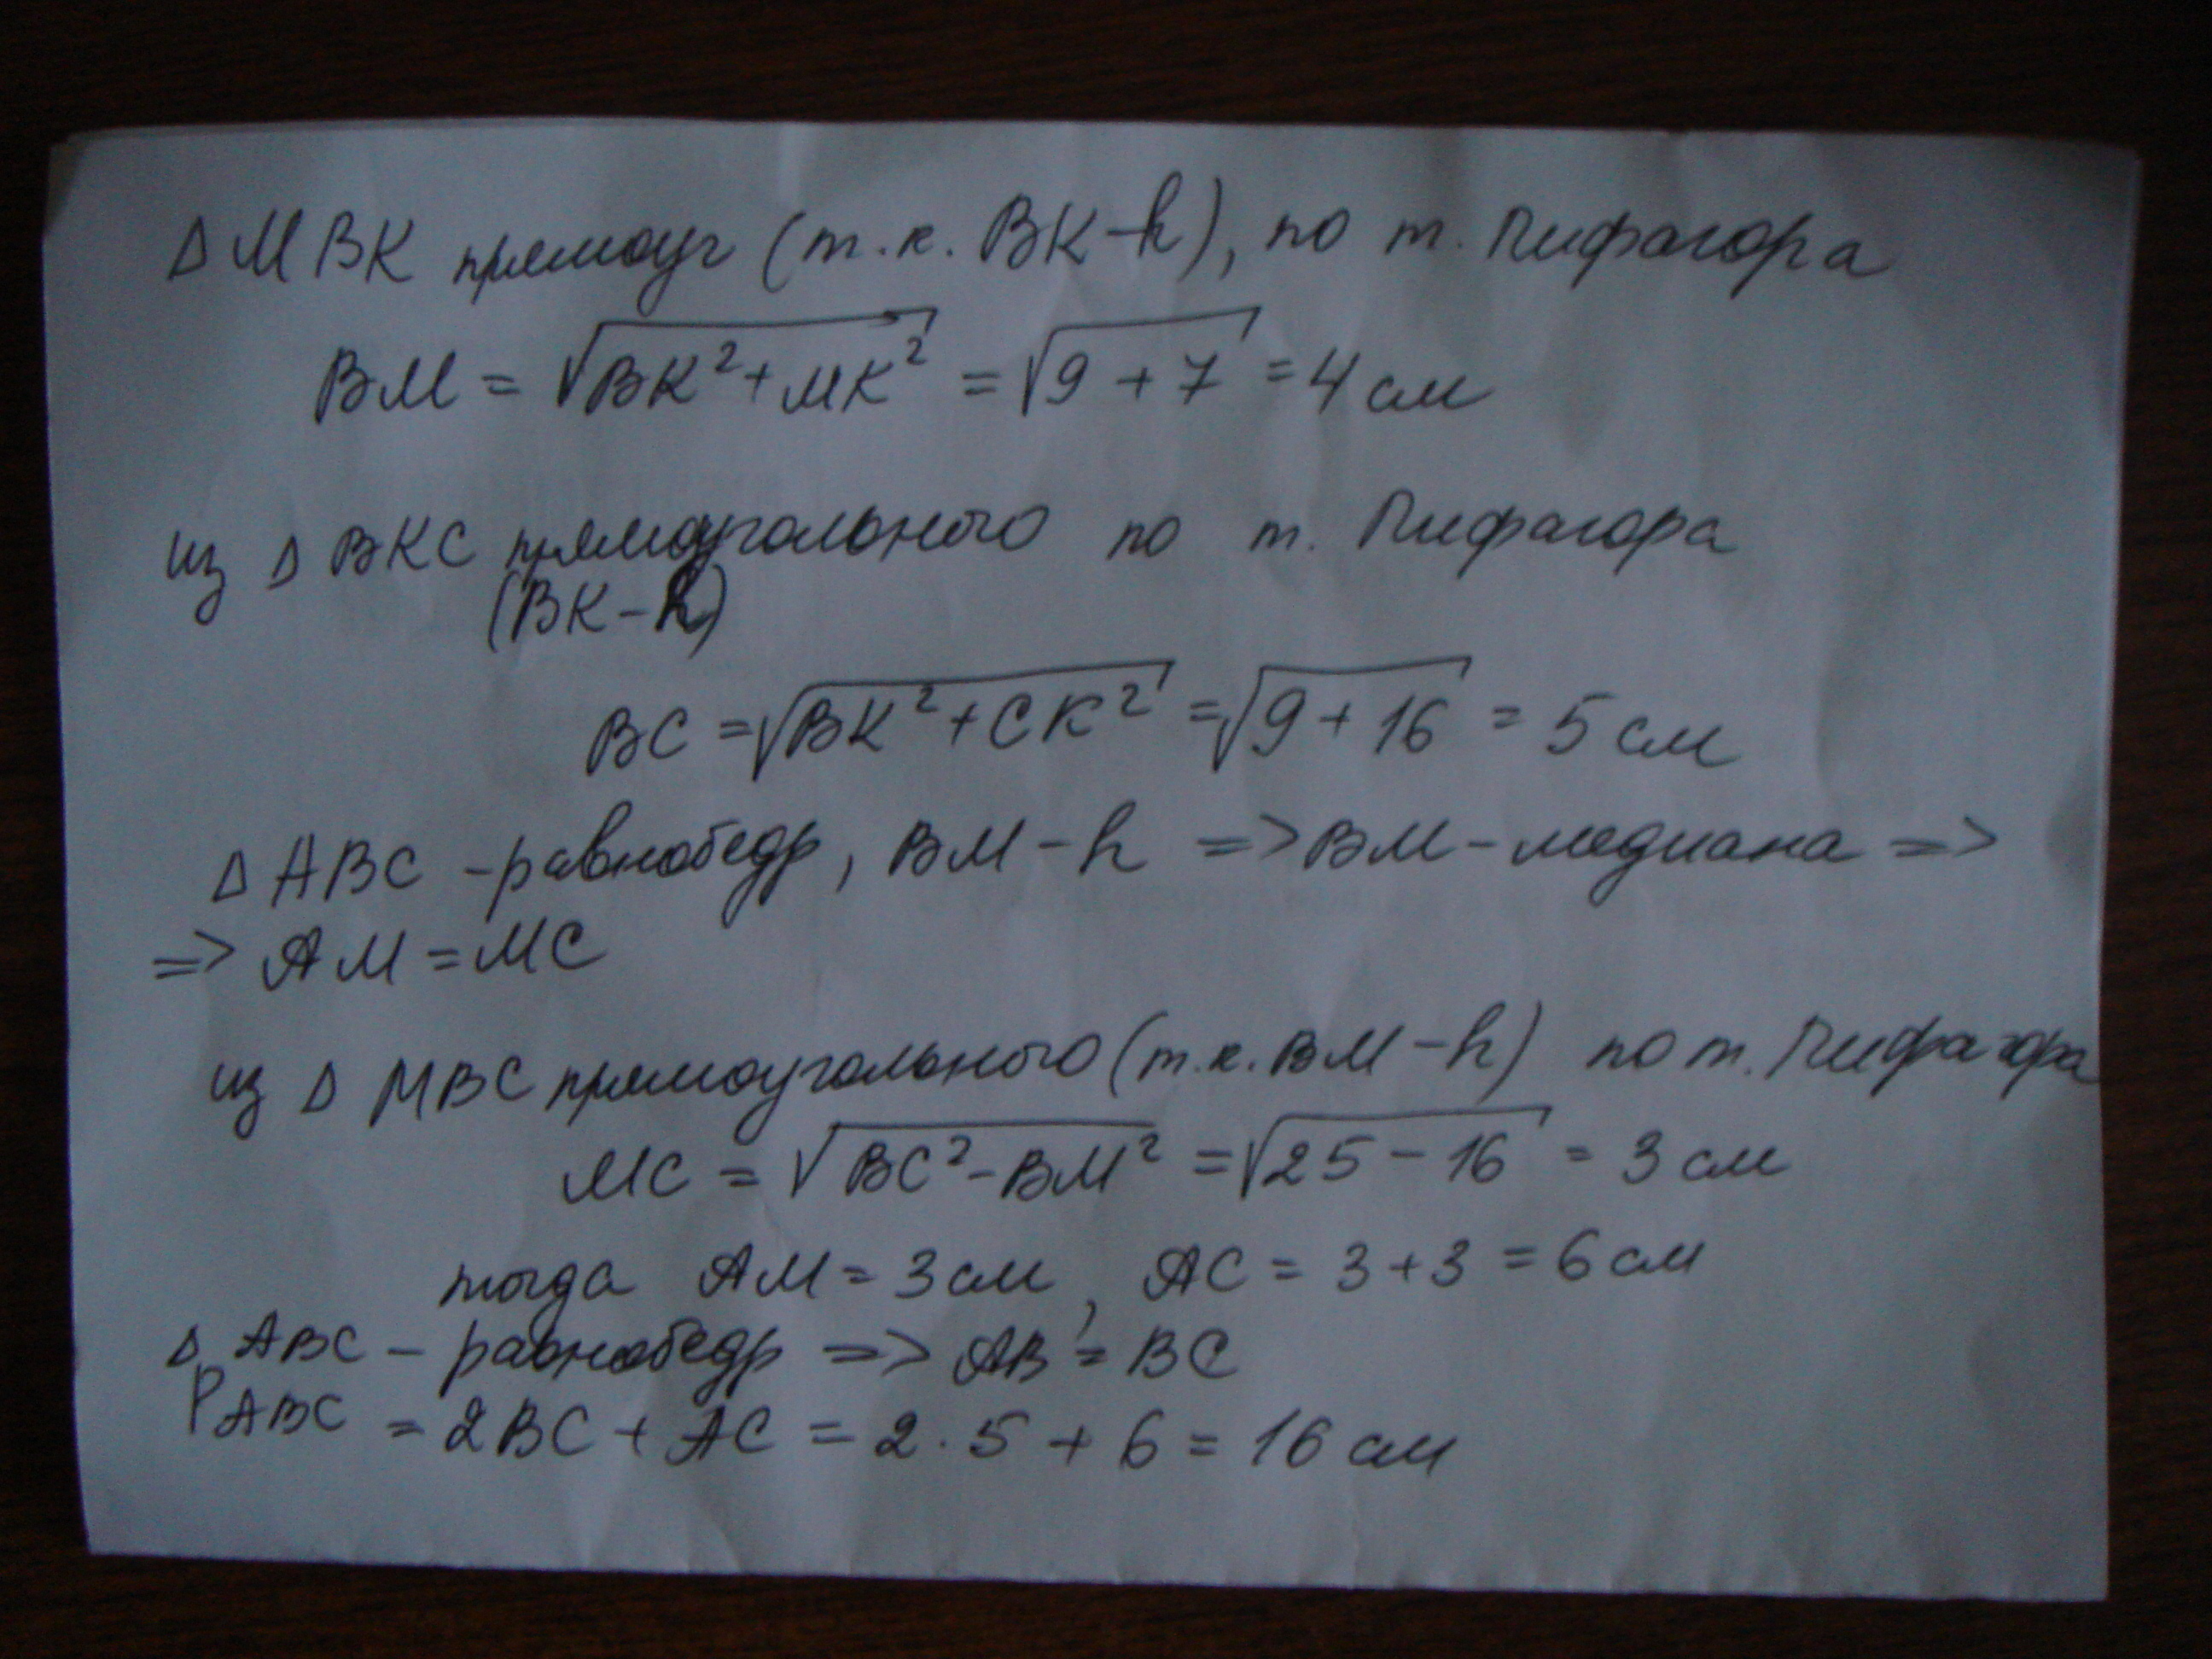 Δ MBK прямоуг (т.к. BK – h), по т. Пифагора
BM = √(BK² + MK²) = √(9 + 7) = 4 см
из Δ BKC прямоугольного по т. Пифагора
(BK – h)
BC = √(BK² + CK²) = √(9 + 16) = 5 см
Δ ABC – равнобедр, BM – h => BM – медиана =>
=> AM = MC
из Δ MBC прямоугольного (т.к. BM – h) по т. Пифагора
MC = √(BC² – BM²) = √(25 – 16) = 3 см
тогда AM = 3 см, AC = 3 + 3 = 6 см
Δ ABC – равнобедр => AB = BC
P ABC = 2BC + AC = 2 · 5 + 6 = 16 см